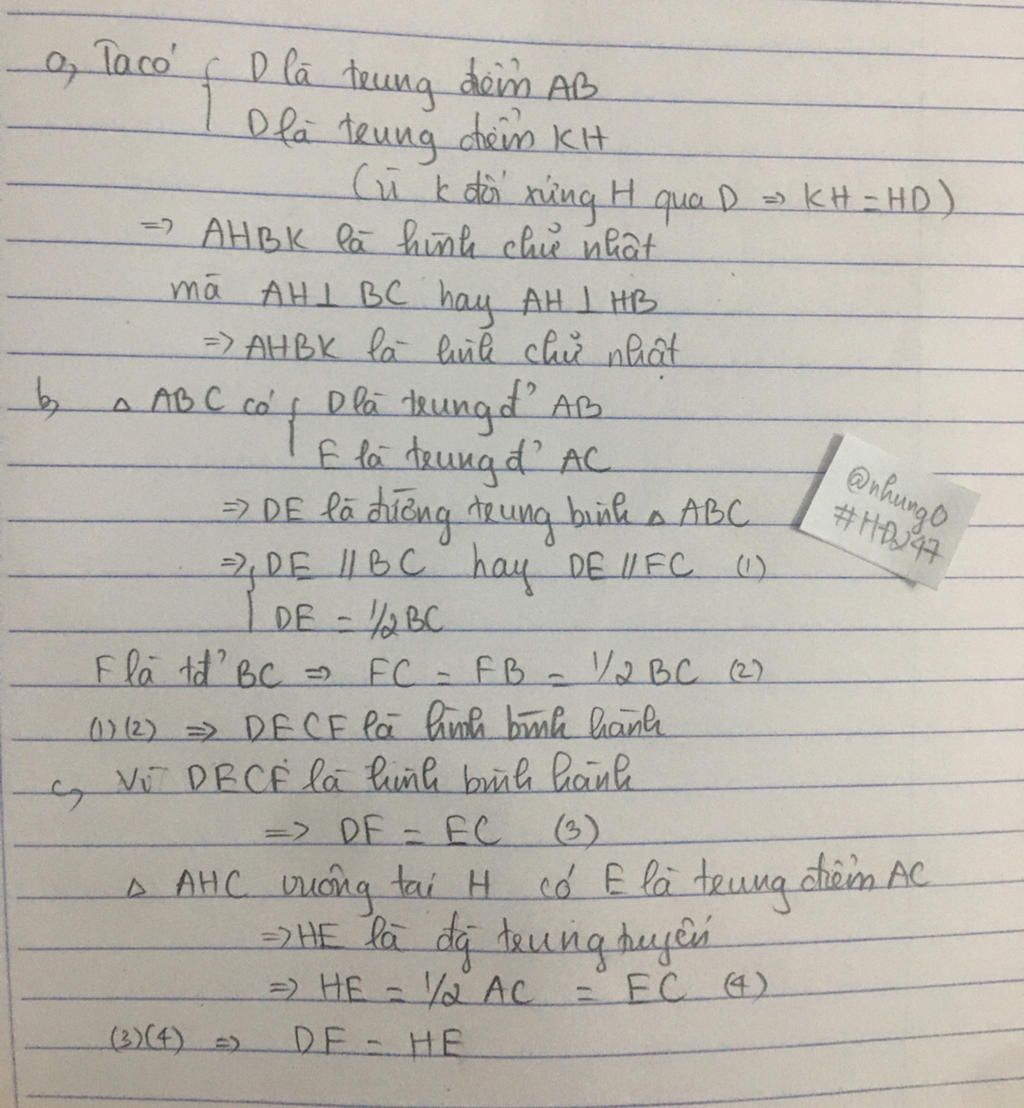 a, Ta có { D là trung điểm AB
D là trung điểm KH
(vì K đối xứng H qua D => KH = HD)
=> AHBK là hình chữ nhật
mà AH ⊥ BC hay AH ⊥ HB
=> AHBK là hình chữ nhật
b, △ ABC có { D là trung đ' AB
E là trung đ' AC
=> DE là đường trung bình △ ABC
=> { DE // BC hay DE // FC (1)
DE = 1/2 BC
F là tđ' BC => FC = FB = 1/2 BC (2)
(1)(2) => DECF là hình bình hành
c, Vì DECF là hình bình hành
=> DF = EC (3)
△ AHC vuông tại H có E là trung điểm AC
=> HE là đg trung tuyến
=> HE = 1/2 AC = EC (4)
(3)(4) => DF = HE
@nhung0
#HD247